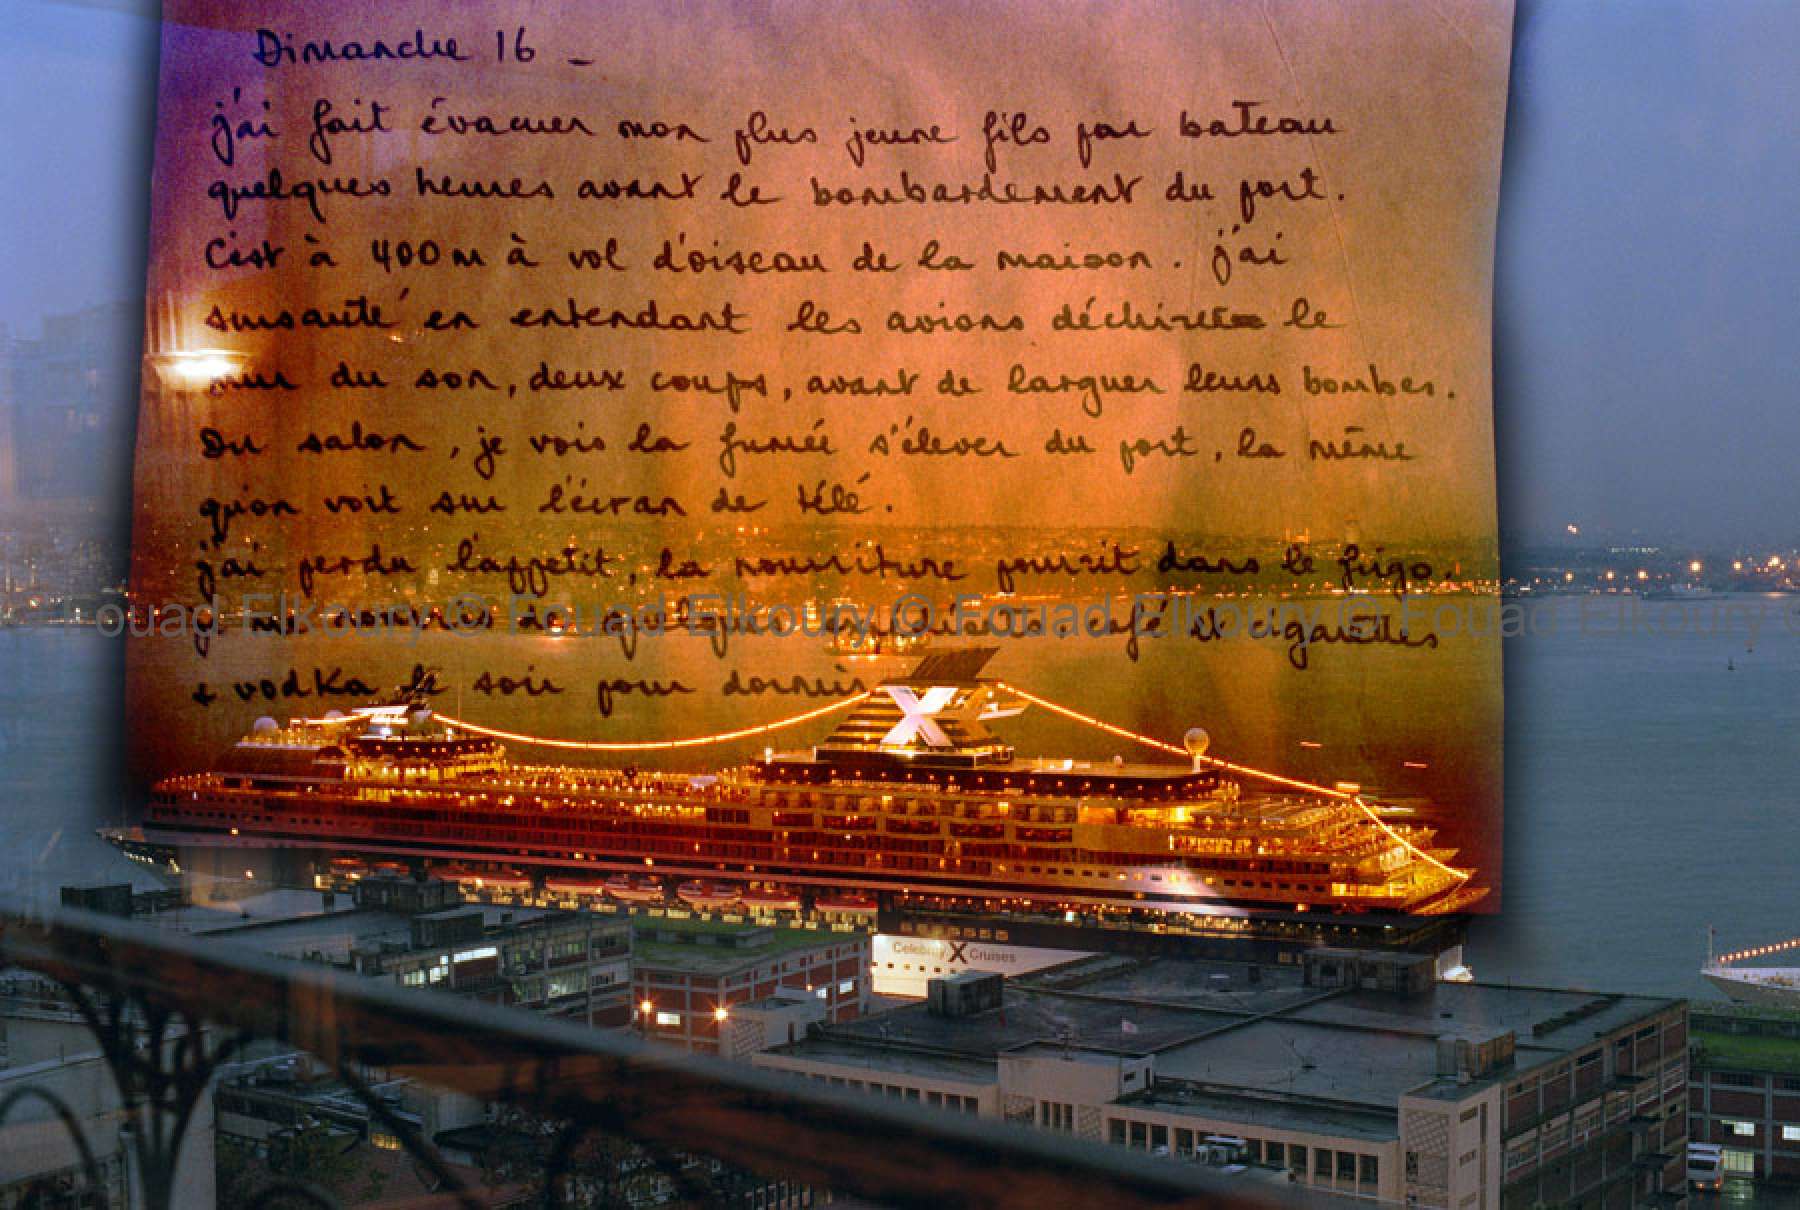 Dimanche 16 -
j'ai fait évacuer mon plus jeune fils par bateau
quelques heures avant le bombardement du port.
C'est à 400m à vol d'oiseau de la maison. j'ai
sursauté en entendant les avions déchirer le
mur du son, deux coups, avant de larguer leurs bombes.
Du salon, je vois la fumée s'élever du port, la même
qu'on voit sur l'écran de télé.
j'ai perdu l'appétit, la nourriture pourrit dans le frigo.
Fouad Elkoury © Fouad Elkoury © Fouad Elkoury © Fouad Elkoury ©
je me nourris de quelques café et cigarettes
+ vodka le soir pour dormir
X
Celebrity X Cruises